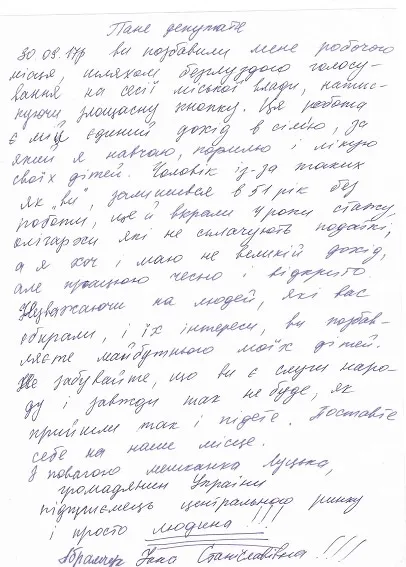 Пане депутате
30.08.17р ви позбавили мене робочого
місця, шляхом безглуздого голосу-
вання на сесії міської влади, натис-
нувши злощасну кнопку. Ця робота
є мій єдиний дохід в сім'ю, за
який я навчаю, кормлю і лікую
своїх дітей. Чоловік із-за таких
як „ви", залишився в 51 рік без
роботи, ще й вкрали 4 роки стажу,
олігархи які не сплачують податкі,
а я хоч і маю не великій дохід,
але працюю чесно і відкрито.
Незважаючи на людей, які вас
обирали, і їх інтереси, ви позбав-
ляєте майбутнього моїх дітей.
Не забувайте, що ви є слуги наро-
ду і завжди так не буде, як
прийшли так і підете. Поставте
себе на наше місце.
З повагою мешканка Луцька,
громадянин України
підприємець центрального ринку
і просто людина!!!!
Інна Станіславівна!!!